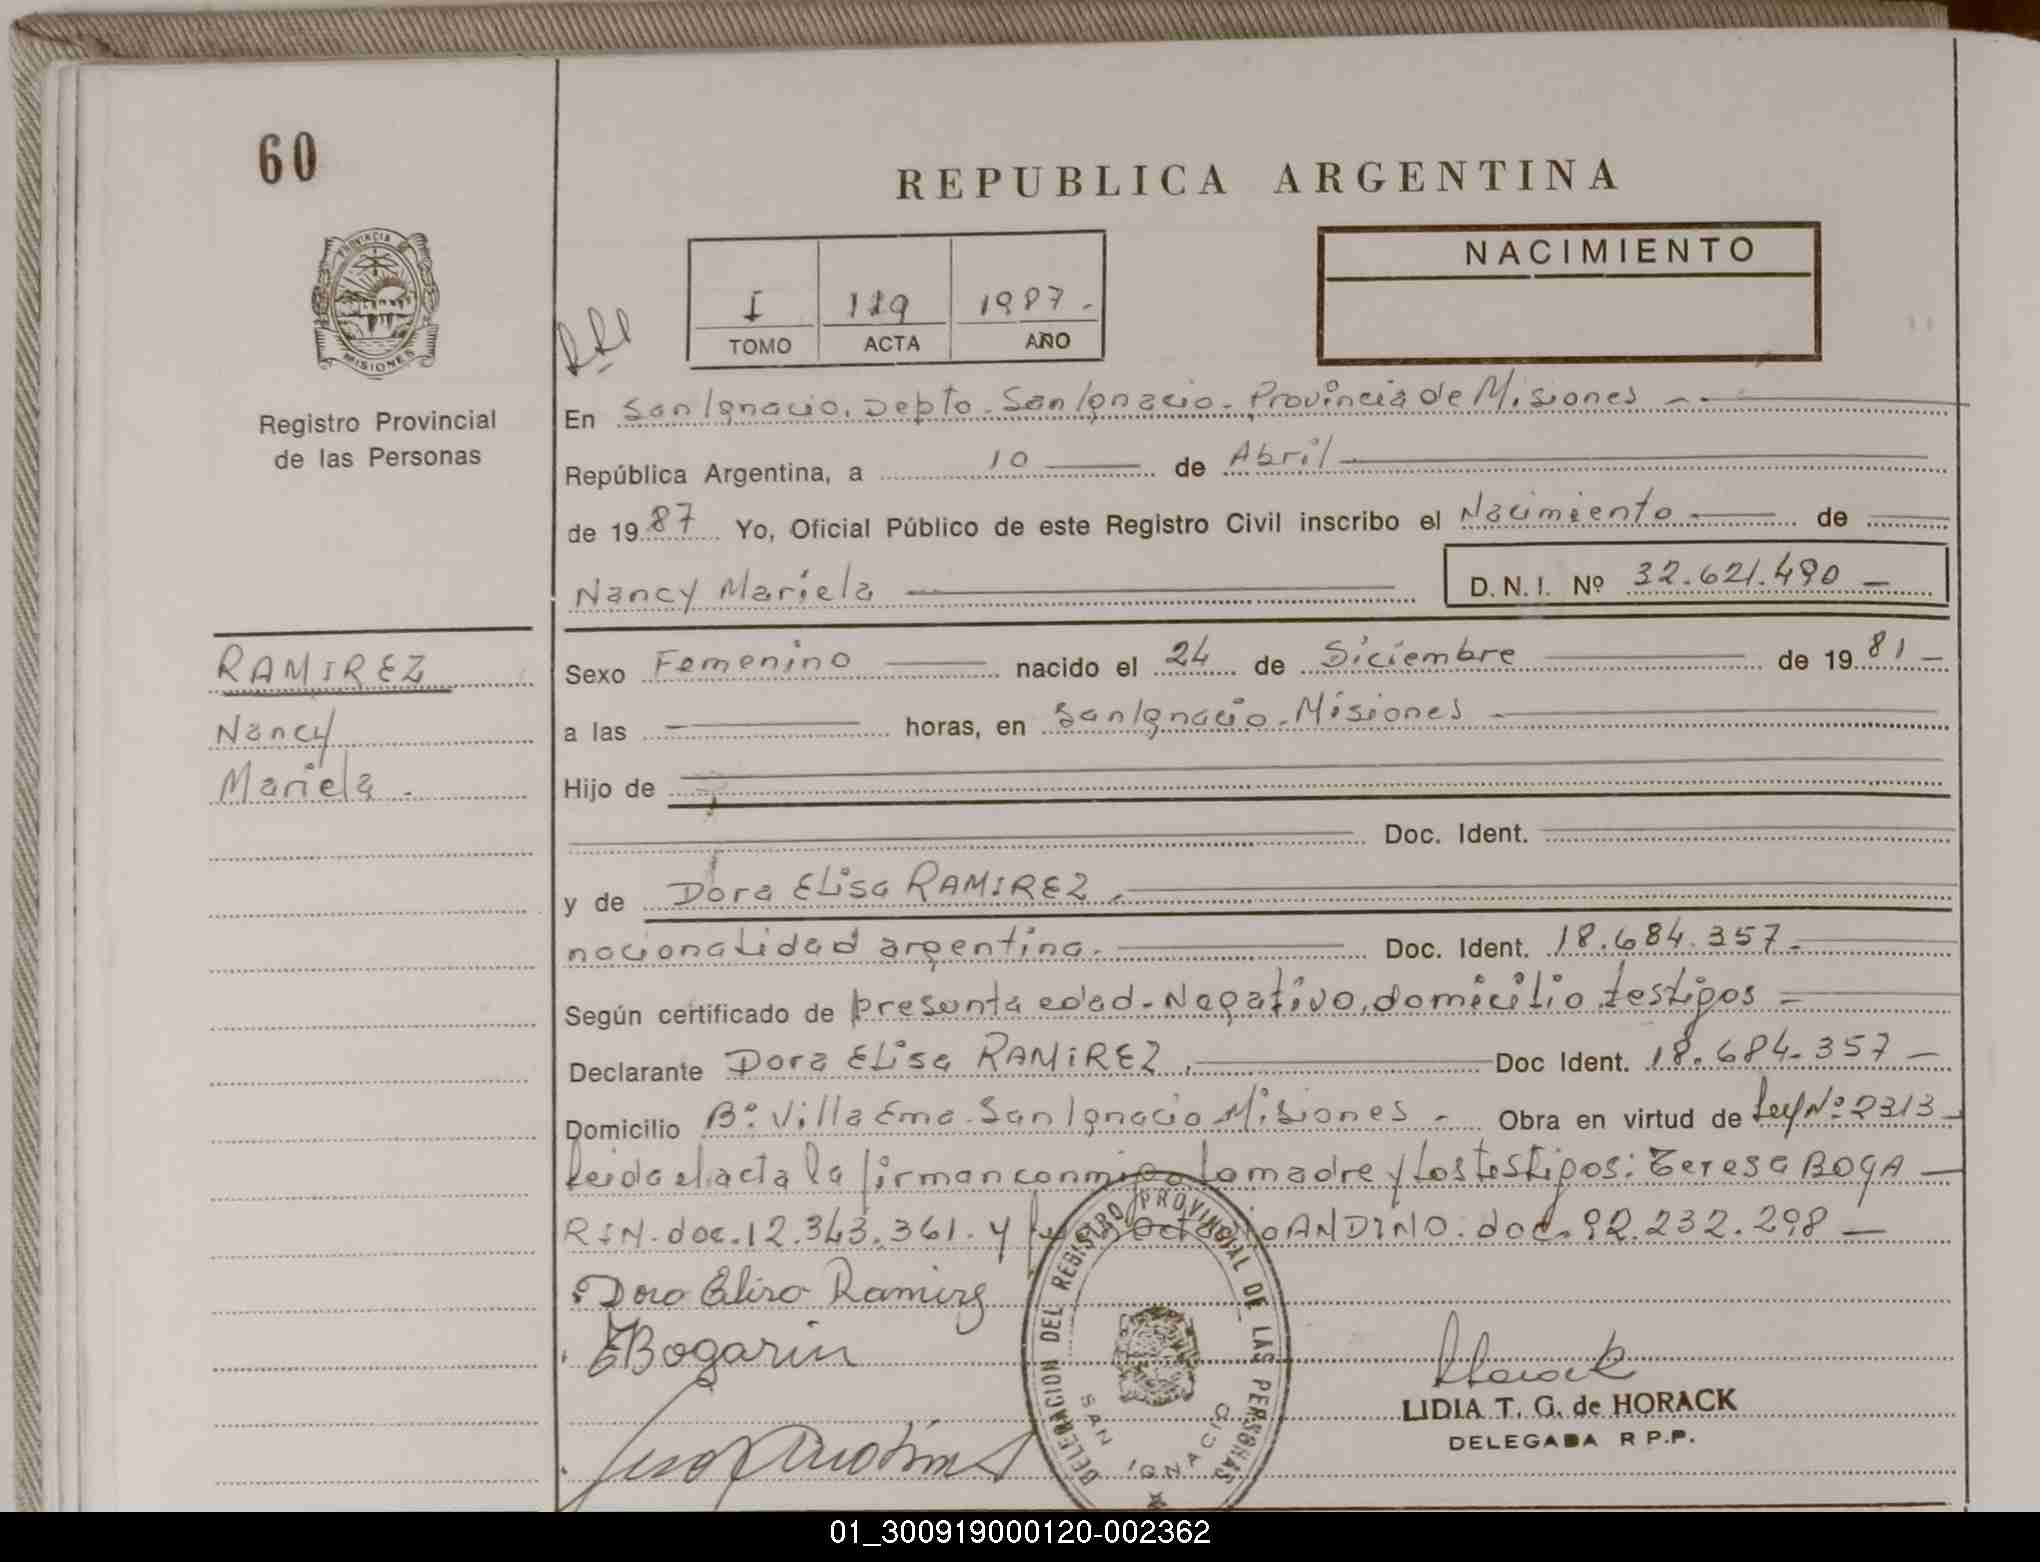 60
REPUBLICA ARGENTINA
PROVINCIA
MISIONES
Registro Provincial
de las Personas
I 119 1987.-
TOMO ACTA AÑO
NACIMIENTO
En San Ignacio, Depto. San Ignacio - Provincia de Misiones -
República Argentina, a 10 de Abril
de 1987 Yo, Oficial Público de este Registro Civil inscribo el Nacimiento de
Nancy Mariela D.N.I. Nº 32.621.490 -
RAMIREZ
Nancy
Mariela.
Sexo Femenino nacido el 24 de Diciembre de 1981 -
a las horas, en San Ignacio - Misiones
Hijo de
Doc. Ident.
y de Dora Elisa RAMIREZ.
nacionalidad argentina. Doc. Ident. 18.684.357 -
Según certificado de presunta edad - Negativo, domicilio, testigos -
Declarante Dora Elisa RAMIREZ, Doc Ident. 18.684.357 -
Domicilio Bº Villa Ema - San Ignacio Misiones - Obra en virtud de Ley Nº 2313 -
leida el acta la firman conmigo la madre y los testigos: Teresa BOGA
RIN. doc. 12.343.361. y ANDINO. doc. 92.232.298 -
Dora Elisa Ramirez
TBogarin
Horack
LIDIA T. G. de HORACK
DELEGADA R P.P.
DELEGACION DEL REGISTRO PROVINCIAL DE LAS PERSONAS
SAN IGNACIO
01_300919000120-002362